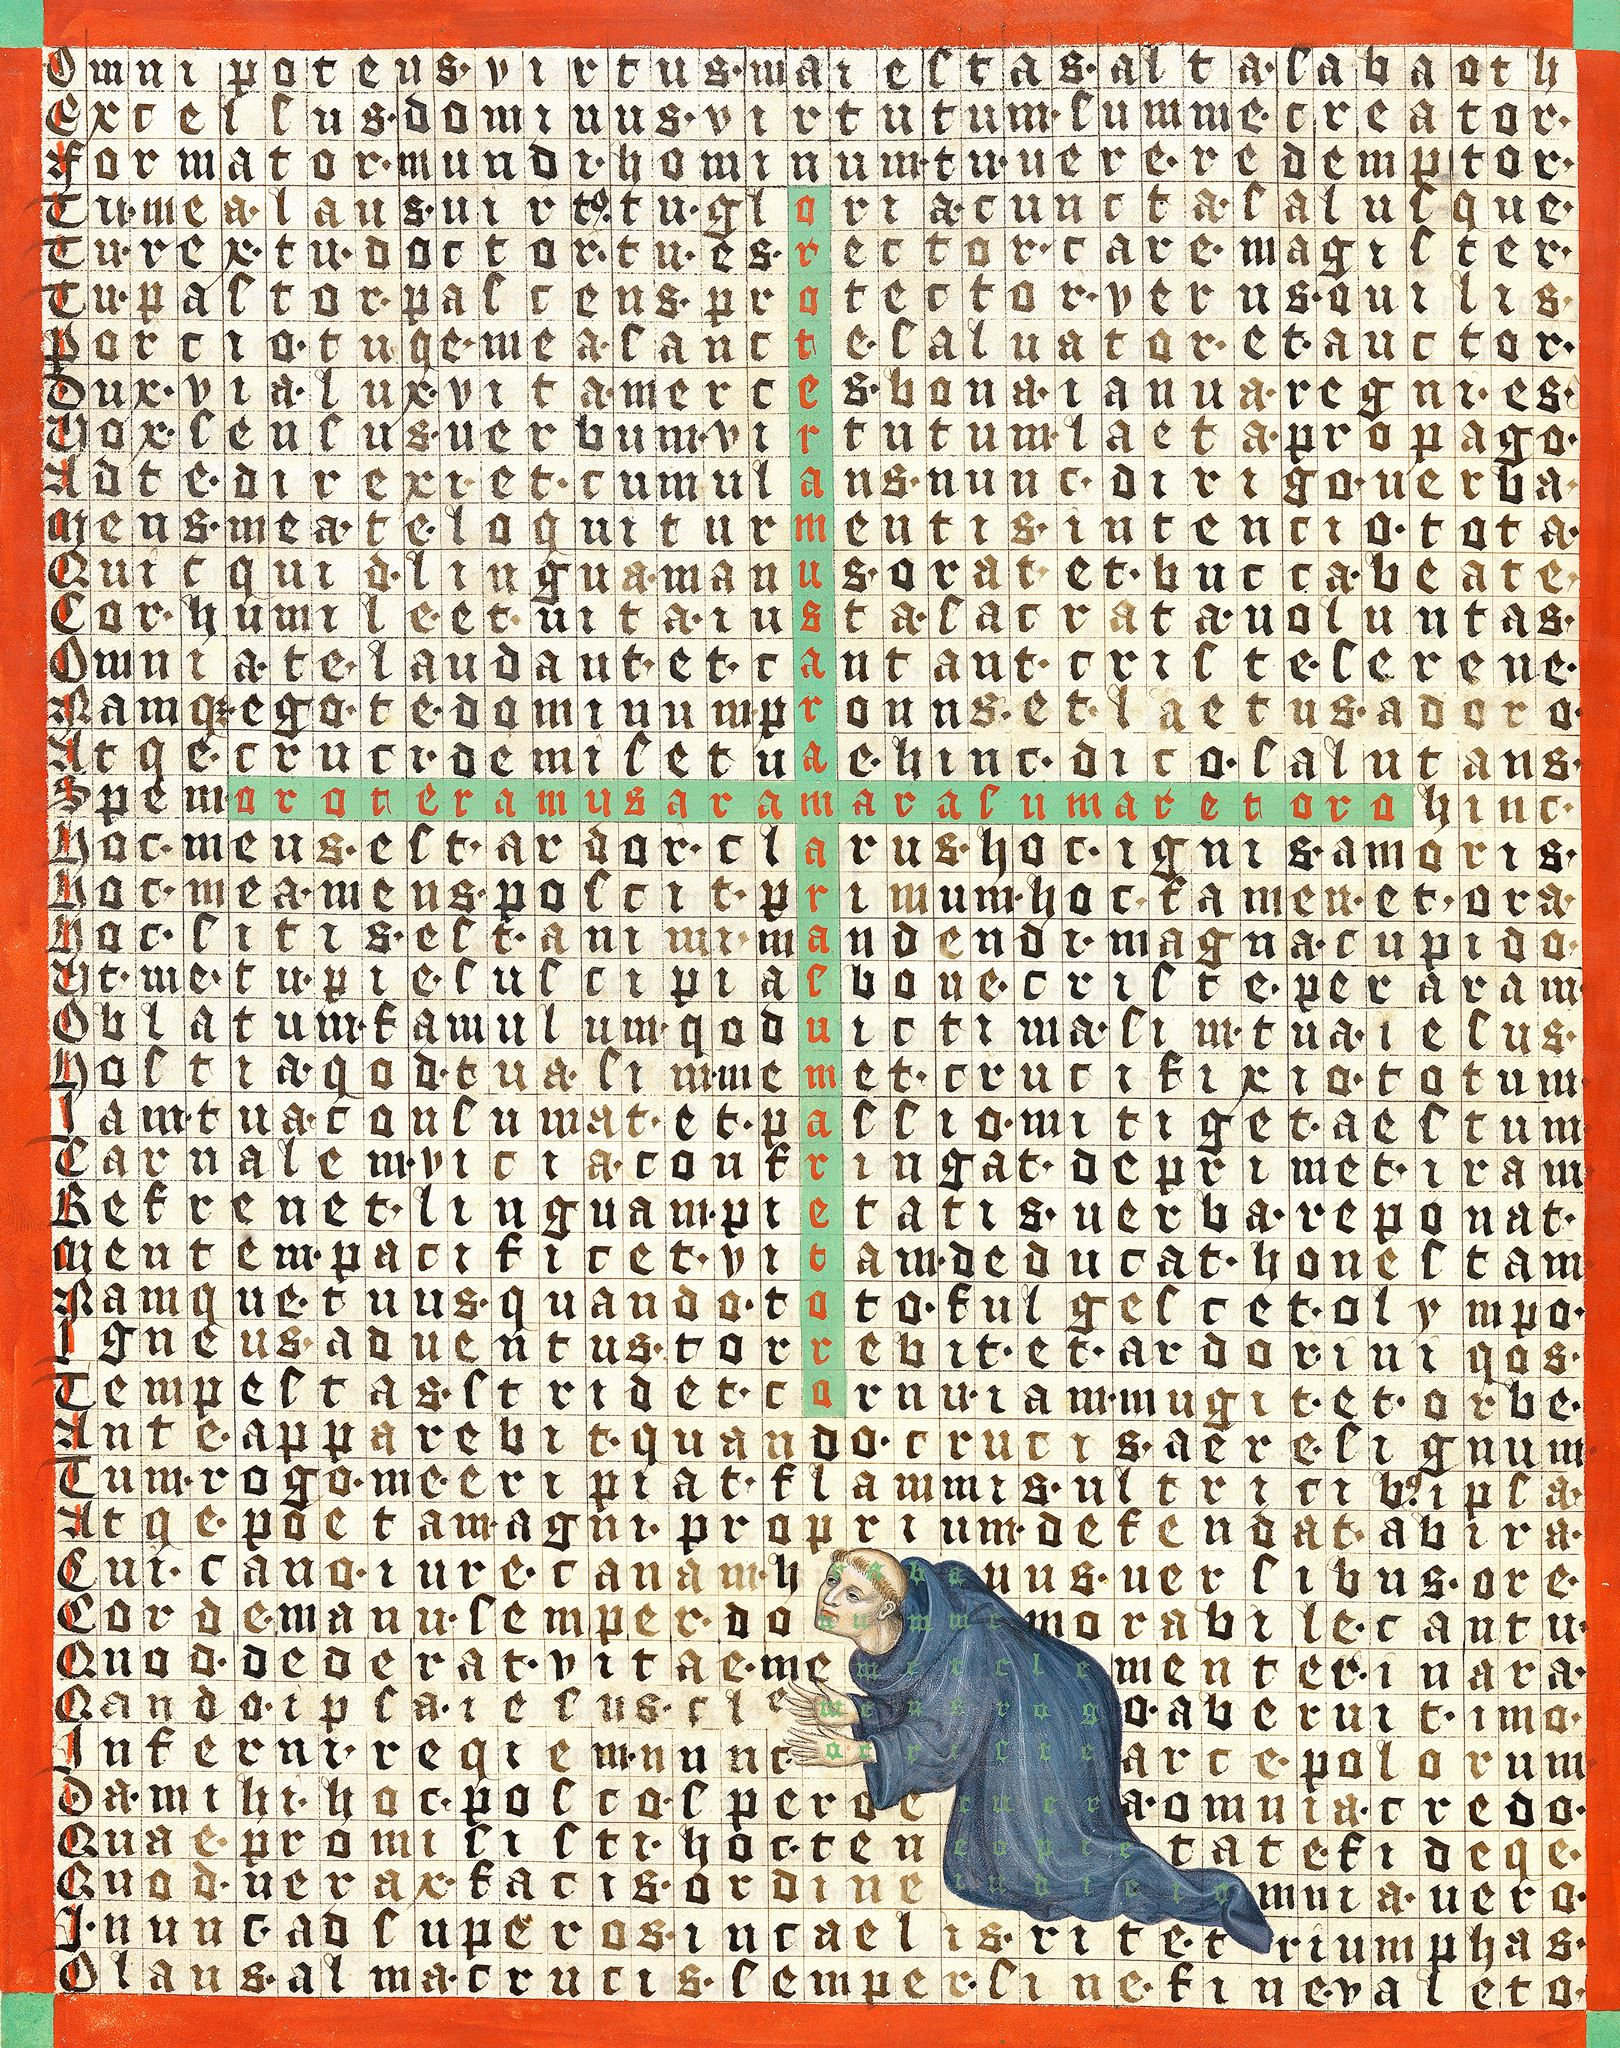 Omnipotens virtus maiestas alta sabaoth
Excelsus dominus virtutum summe creator
Formator mundi hominum tu uere redemptor
Tu mea laus uirt9 tu gloria cuncta salusque
Tu rex tu doctor tu es rector care magister
Tu pastor pascens protector verus ouilis
Portio tuqe mea sancte saluator et auctor
Dux via lux vita merces bona ianua regni es
Vox sensus uerbum virtutum laeta propago
Ad te direxi et cumulans nunc dirigo uerba
Mens mea te loquitur mentis intencio tota
Quicquid lingua manus orat et bucca beate
Cor humile et uita iusta sacrata uoluntas
Omnia te laudant et cantant criste serene
Namq; ego te dominum pronus et laetus adoro
Atqe cruci demise tuae hinc dico salutans
Spem oro te ramus ara mara sumar et oro hinc
Hoc meus est ardor clarus hoc ignis amoris
Hoc mea mens poscit primum hoc famen et ora
Hoc sitis est animi mandendi magna cupido
Vt me tu pie suscipias bone criste per aram
Oblatum famulum qod uictima sim tua iesus
Hostia qod tua sim met crucifixio totum
Iam tua consumat et passio mitiget aestum
Carnalem vicia confringat deprimet iram
Refrenet linguam pietatis uerba reponat
Mentem pacificet vitam deducat honestam
Namque tuus quando toto fulgescet olympo
Igneus aduentus torrebit et ardor iniqos
Tempestas stridet cornu iam mugit et orbe
Ante apparebit quando crucis aere signum
Tum rogo me eripiat flammis ultricib9 ipsa
Atqe poetam agni proprium defendat ab ira
Cui cano iure canam hrabanus uersibus ore
Corde manu semper donum memorabile cantu
Quod dederat vitae memet clementer in ara
Qando ipsa iesus clemens rogo ab eruit imo
Inferni reqiem nunc o criste arce polorum
Da mihi hoc posco spero et uera omnia credo
Quae promisisti hoc teneo pietate fideqe
Quod uerax facis ordine iudicio omnia uero
I nunc ad superos in caelis rite triumphas
O laus alma crucis semper sine fine valeto